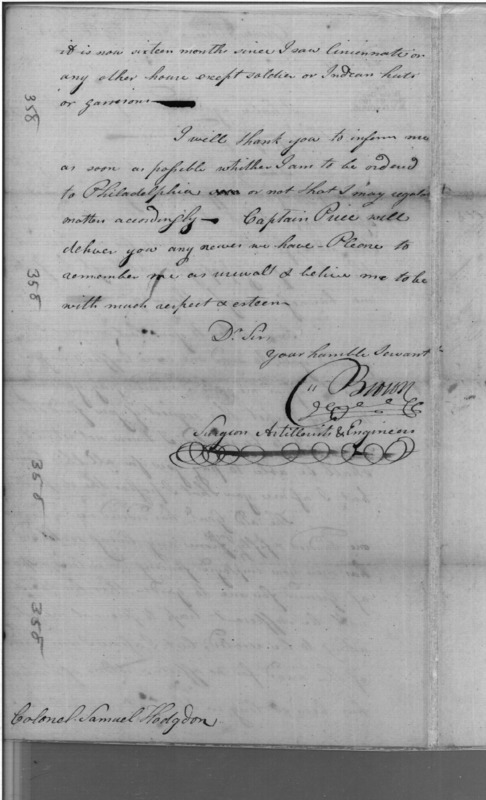 it is now sixteen months since I saw Cincinnati or
any other house except soldier or Indean huts
or garrisons
I will thank you to inform me
as soon as possible whither I am to be ordered
to Philadelphia or not that I may regulate
matters accordingly — Captain Price will
deliver you any newes we have — Please to
remember me as usual & believe me to be
with much respect & esteem
Dr. Sir
your humble Servant
Brown
Surgeon Artillerists & Engineers
Colonel Samuel Hodgdon
358
358
358
358